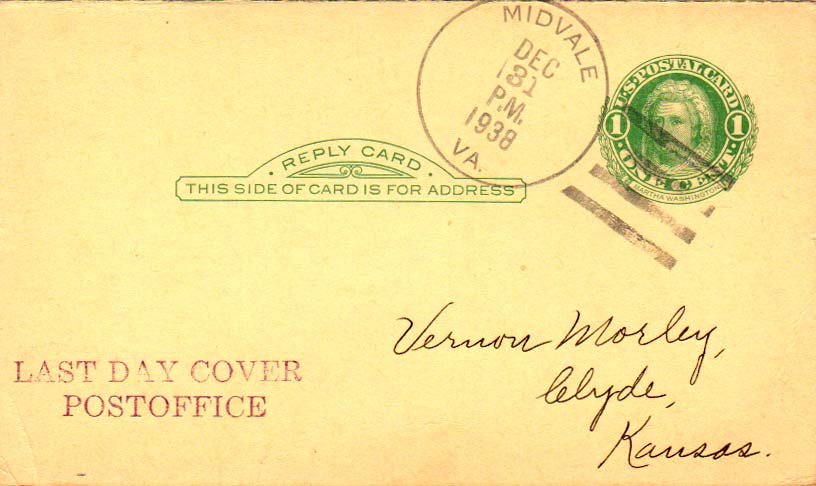 MIDVALE
DEC
31
P.M.
1938
VA.
U.S. POSTAL CARD
1 1
ONE CENT
MARTHA WASHINGTON
· REPLY CARD ·
THIS SIDE OF CARD IS FOR ADDRESS
Vernon Morley,
Clyde,
Kansas.
LAST DAY COVER
POSTOFFICE